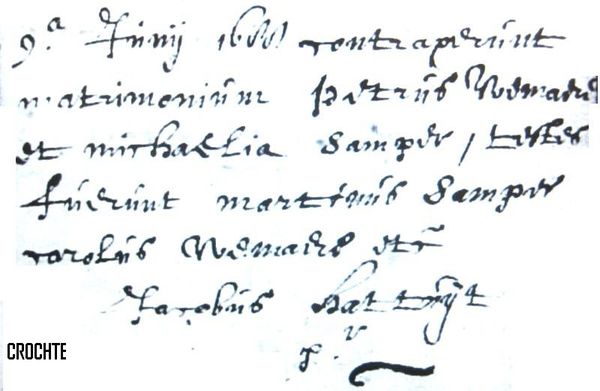 9.ᵃ Junij 1660 contraxerunt
matrimonium petrus Wemaere
et michaelia Samper, testes
fuerunt martinus Samper
carolus Wemaere etc
Jacobus
p. v
CROCHTE